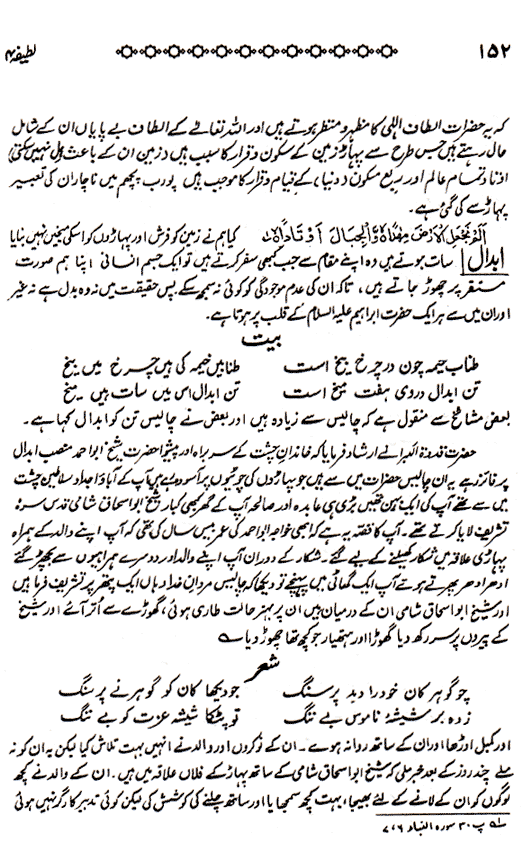 ۱۵۲ لطیفہ ۴
کہ یہ حضرات الطاف الٰہی کا مظہر و منتظر ہوتے ہیں اور اللہ تعالےٰ کے الطاف بے پایاں ان کے شامل
حال رہتے ہیں جس طرح سے پہاڑ زمین کے سکون و قرار کا سبب ہیں زمین ان کے باعث ہل نہیں سکتی
اوتاد تمام عالم اور ربع سکون دنیا کے قیام و قرار کا موجب ہیں پورب پچھم میں ناچار ان کی تعبیر
پہاڑ سے کی گئی ہے۔
اَلَمْ نَجْعَلِ الْاَرْضَ مِهٰدًا وَّالْجِبَالَ اَوْتَادًا لہ کیا ہم نے زمین کو فرش اور پہاڑوں کو اسکی میخیں نہیں بنایا
ابدال سات ہوتے ہیں وہ اپنے مقام سے جب کبھی سفر کرتے ہیں تو ایک جسم انسانی اپنا ہم صورت
مستقر پر چھوڑ جاتے ہیں، تاکہ ان کی عدم موجودگی کو کوئی نہ سمجھ سکے پس حقیقت میں نہ وہ بدل ہے نہ غیر
اور ان میں سے ہر ایک حضرت ابراہیم علیہ السلام کے قلب پر ہوتا ہے۔
بیت
طناب خیمہ چون در چرخ یخ است طنابیں خیمہ کی ہیں چرخ میں یخ
تن ابدال در وی ہفت میخ است تن ابدال اس میں سات ہیں میخ
بعض مشائخ سے منقول ہے کہ چالیس سے زیادہ ہیں اور بعض نے چالیس تن کو ابدال کہا ہے۔
حضرت قدوۃ الکبرا نے ارشاد فرمایا کہ خاندان چشت کے سربراہ اور پیشوا حضرت شیخ ابو احمد منصب ابدال
پر فائز تھے یہ ان چالیس حضرات میں سے ہیں جو پہاڑوں کی چوٹیوں پر آسودہ ہیں آپ کے آباؤ اجداد سلاطین چشت
میں سے تھے آپ کی ایک بہن تھیں بڑی ہی عابدہ اور صالحہ آپ کے گھر کبھی کبار شیخ ابو اسحاق شامی قدس سرہٗ
تشریف لایا کرتے تھے۔ آپ کا قصہ یہ ہے کہ ابھی خواجہ ابو احمد کی عمر بیس سال کی تھی کہ آپ اپنے والد کے ہمراہ
پہاڑی علاقہ میں شکار کھیلنے کے لیے گئے۔ شکار کے دوران آپ اپنے والد اور دوسرے ہمراہیوں سے بچھڑ گئے
ادھر ادھر پھرتے ہوئے آپ ایک گھاٹی میں پہنچے تو دیکھا کہ چالیس مردان خدا وہاں ایک پتھر پر تشریف فرما ہیں
اور شیخ ابو اسحاق شامی ان کے درمیان ہیں ان پر بہتر حالت طاری ہوئی، گھوڑے سے اُتر آئے اور شیخ
کے پیروں پر سر رکھ دیا گھوڑا اور ہتھیار جو کچھ تھا چھوڑ دیا۔
شعر
چو گوہر کان خود را دید پر سنگ جو دیکھا کان کو گوہر نے پر سنگ
زدہ بر شیشۂ ناموس بے ننگ تو پٹکا شیشہ عزت کو بے ننگ
اور کمبل اوڑھا اور ان کے ساتھ روانہ ہوے۔ ان کے نوکروں اور والد نے انہیں بہت تلاش کیا لیکن یہ ان کو نہ
ملے چند روز کے بعد خبر ملی کہ شیخ ابو اسحاق شامی کے ساتھ پہاڑ کے فلاں علاقہ میں ہیں۔ ان کے والد نے کچھ
لوگوں کو ان کے لانے کے لئے بھیجا، بہت کچھ سمجھایا اور ساتھ چلنے کی کوشش کی لیکن کوئی تدبیر کارگر نہیں ہوئی
لہ پ ۳۰ سورہ النباء ۷،۶